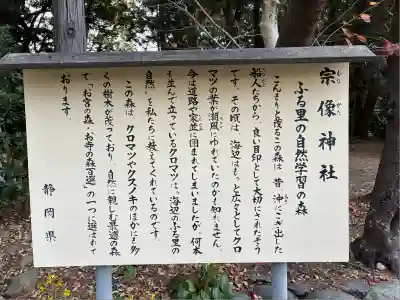 宗像神社
むな かた
ふる里の自然学習の森
こんもりと茂るこの森は、昔、沖にこぎ出した
船人たちから、良い目印として大切にされたそう
です。その頃は、海辺はもっと広々としてクロ
マツの葉が潮風にゆれていたのかも知れません。
今は道路や家並に囲まれてしまいましたが、何本
も並んで立っているクロマツは、海辺のふる里の
自然を私たちに教えてくれているのです。
この森は、クロマツやクスノキのほかにも多
くの樹木が茂っており、自然に親しむ最適の森
で、「お宮の森・お寺の森百選」の一つに選ばれて
おります。
静岡県